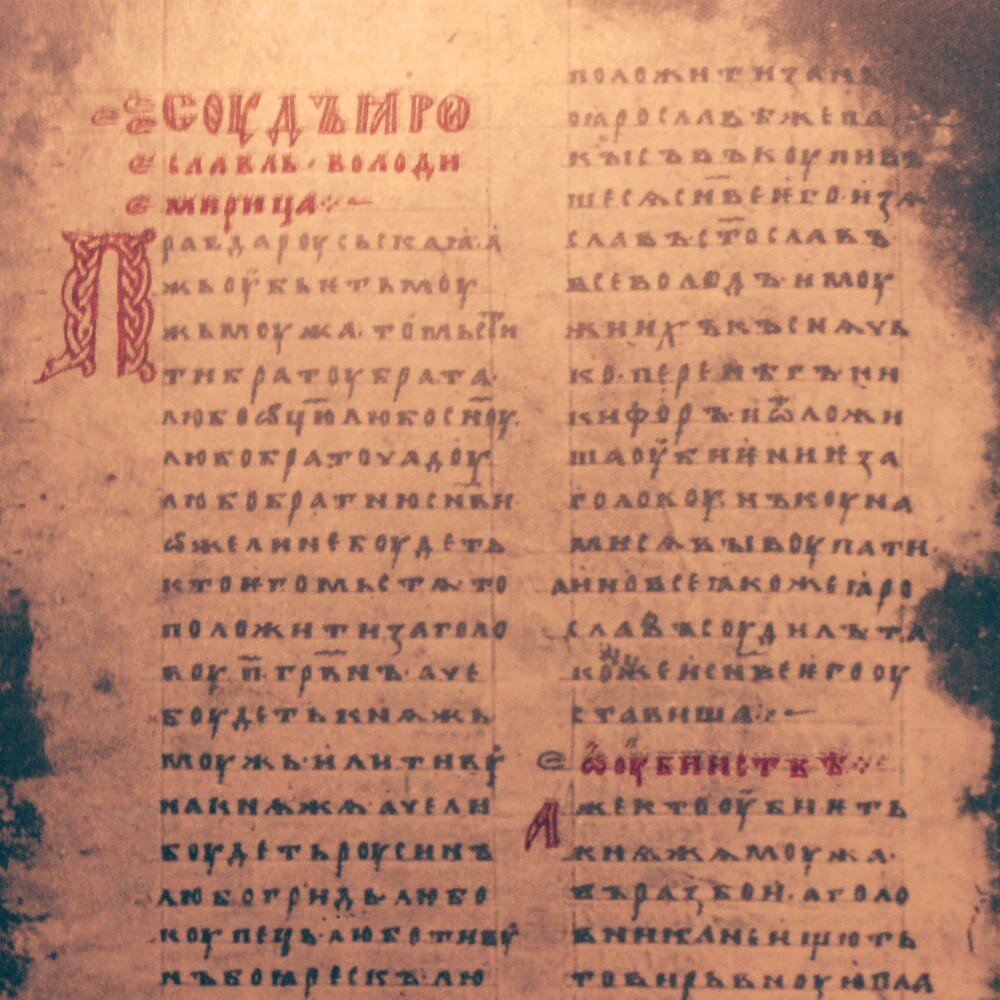 СОУДЪ ꙖРО
СЛАВЛЬ · ВОЛОДИ
МИРИЦА
ПРАВДА РОУСЬСКАꙖ · А
ЖЬ ОУБЬЕТЬ МОУ
ЖЬ МОУЖА · ТО МЬСТИ
ТИ БРАТОУ БРАТА ·
ЛЮБО ѾЦЮ ЛЮБО СН҃ОУ ·
ЛЮБО БРАТОУЧАДОУ
ЛЮБО БРАТНЮ СН҃ВИ
ѠЖЕ ЛИ НЕ БОУДЕТЬ
КТО ѤГО МЬСТѦ · ТО
ПОЛОЖИТИ ЗА ГОЛО
ВОУ · П҃ · ГРВ҃НЪ · АЧЕ
БОУДЕТЬ КНѦЖЬ
МОУЖЬ · ИЛИ ТИВУ
НА КНѦЖѦ · АЧЕ ЛИ
БОУДЕТЬ РОУСИНЪ
ЛЮБО ГРИДЬ · ЛЮБО
КОУПЕЦЬ · ЛЮБО ТИВУ
НЪ БОꙖРЕСКЪ · ЛЮ
ПОЛОЖИТИ ЗА НЬ
ПО ꙖРОСЛАВѢ ЖЕ ПА
КЫ СЪВЪКОУПИВЪ
ШЕСѦ СН҃ВЕ ѤГО · ИЗѦ
СЛАВЪ · СТ҃ОСЛАВЪ ·
ВСЕВОЛОДЪ · И МОУ
ЖИ ИХЪ КЪСНѦЧЬ
КО · ПЕРЕНѢГЪ · НИ
КИФОРЪ · И ѾЛОЖИ
ША ОУБИЕНИЕ ЗА
ГОЛОВОУ · НЪ КОУНА
МИ СѦ ВЫКОУПАТИ ·
А ИНО ВСЕ ꙖКОЖЕ ꙖРО
СЛАВЪ СОУДИЛЪ ТА
КОЖЕ И СН҃ВЕ ѤГО ОУ
СТАВИША ·
Ѡ ОУБИИСТВѢ
АЖЕ КТО ОУБИѤТЬ
КНѦЖѦ МОУЖА ·
ВЪ РАЗБОИ · А ГОЛО
ВНИКА НЕ ИЩЮТЬ
ТО ВИРЪВНОУЮ ПЛА